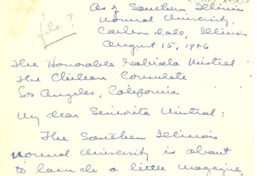 file?
As a Southern Illinois
Normal University,
Carbondale, Illinois
August 15, 1946
The Honorable Gabriela Mistral
The Chilean Consulate
Los Angeles, California
My dear Señorita Mistral:
The Southern Illinois
Normal University is about
to launch a little magazine,